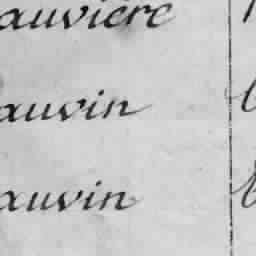 auvière
auvin
auvin